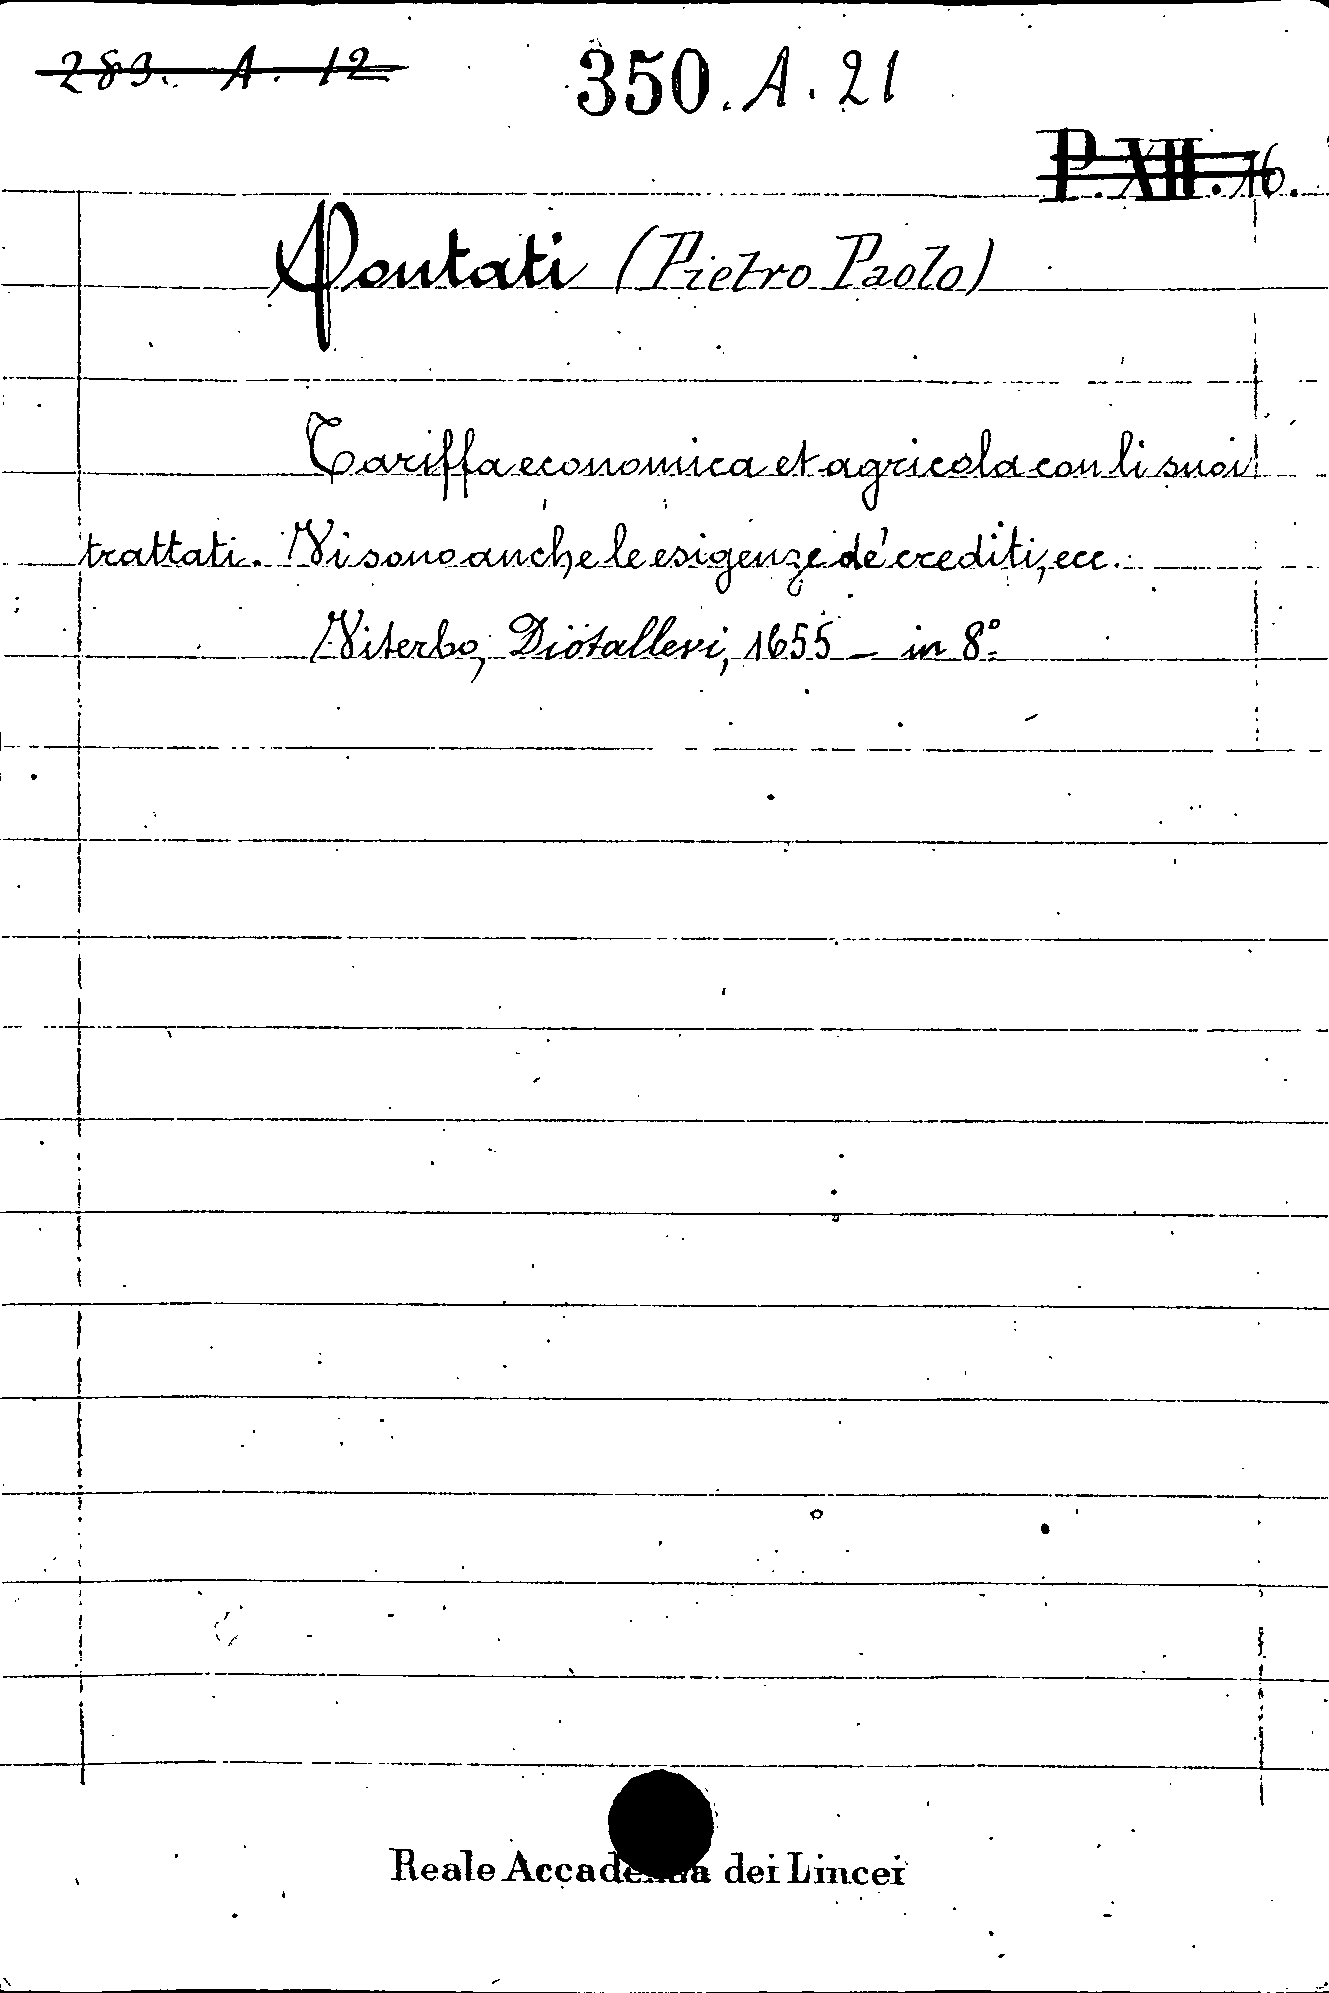 283. A. 12
350. A. 21
P. XII. 16.
Pontati (Pietro Paolo)
Tariffa economica et agricola con li suoi
trattati. Vi sono anche le esigenze de' crediti, ecc.
Viterbo, Diotallevi, 1655 - in 8°.
Reale Accademia dei Lincei